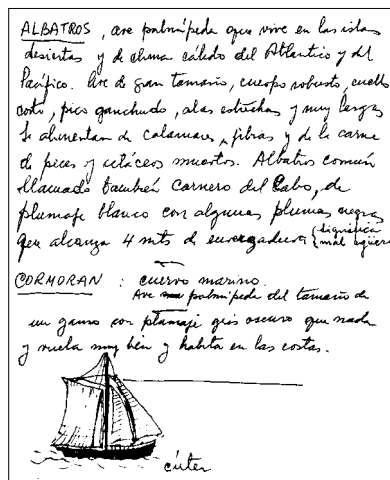 ALBATROS, ave palmípeda que vive en las islas
desiertas y de clima cálido del Atlántico y del
Pacífico. Ave de gran tamaño, cuerpo robusto, cuello
corto, pico ganchudo, alas estrechas y muy largas
Se alimentan de calamares, y de la carne
de peces y cetáceos muertos. Albatros común
llamado también Carnero del Cabo, de
plumaje blanco con algunas plumas negras
que alcanza 4 mts de envergadura (significa
mal agüero
CORMORAN : cuervo marino.
Ave palmípeda del tamaño de
un ganso con plumaje gris oscuro que nada
y vuela muy bien y habita en las costas.
cúter